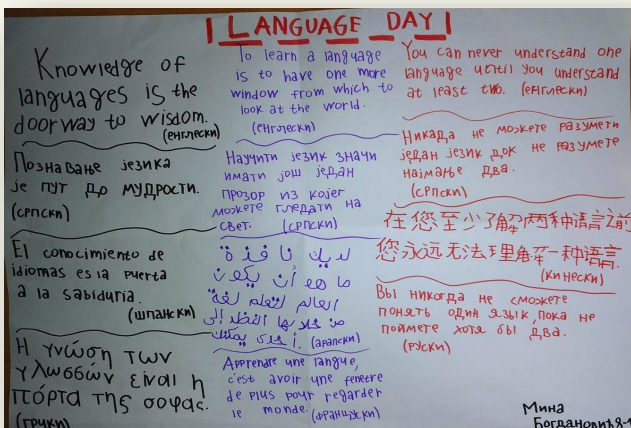 LANGUAGE DAY
Knowledge of
languages is the
doorway to wisdom.
(енглески)
Познавање језика
је пут до мудрости.
(српски)
El conocimiento de
idiomas es la puerta
a la sabiduria.
(шпански)
Η γνώση των
γλωσσών είναι η
πόρτα της σοφας.
(грчки)
To learn a language
is to have one more
window from which to
look at the world.
(енглески)
Научити језик значи
имати још један
прозор из којег
можете гледати на
свет. (српски)
لديك نافذة
ما هو أن يكون
العالم لتعلم لغة
من خلالها النظر إلى
أخرى يمكنك. (арапски)
Apprendre une langue,
c'est avoir une fenetre
de plus pour regarder
le monde. (француски)
You can never understand one
language until you understand
at least two. (енглески)
Никада не можете разумети
један језик док не разумете
најмање два.
(српски)
在您至少了解两种语言之前
您永远无法理解一种语言.
(кинески)
Вы никогда не сможете
понять один язык, пока не
поймете хотя бы два.
(руски)
Мина
Богдановић 8-